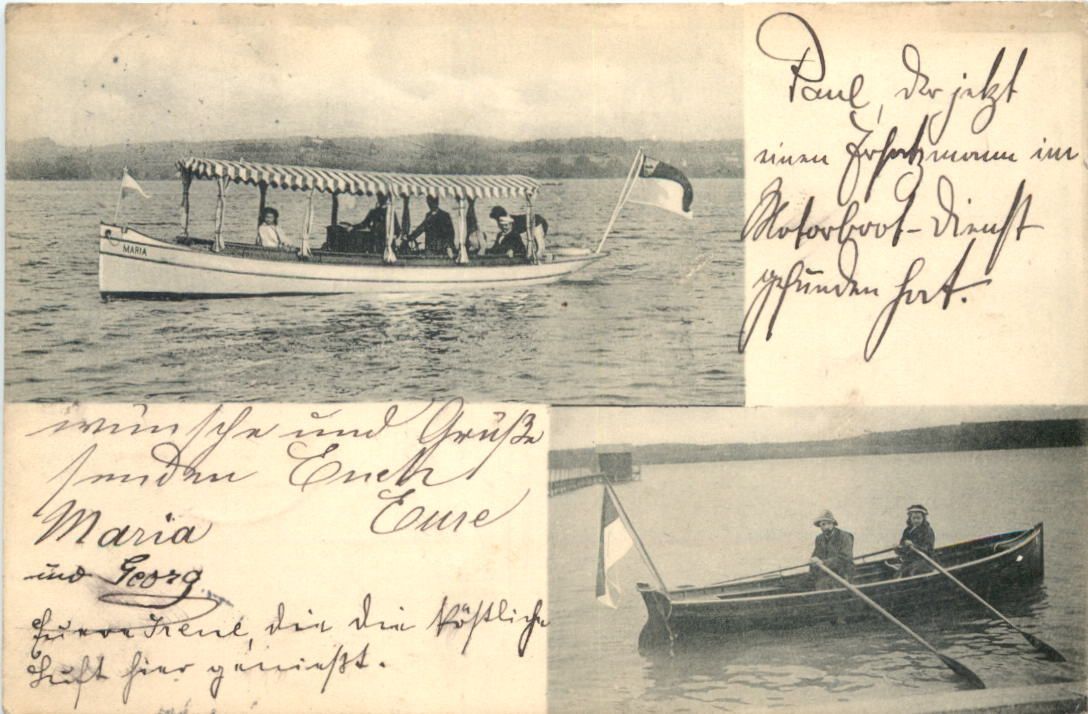 MARIA
Paul, der jetzt
einen Ersatzmann im
Motorboot-Dienst
gefunden hat.
wünsche und Grüße
senden Euch
Eure
Maria
und Georg
Irene, die die köstliche
Luft hier genießt.